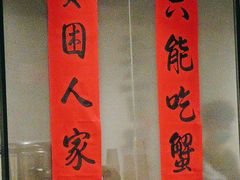 困人家
能吃蟹